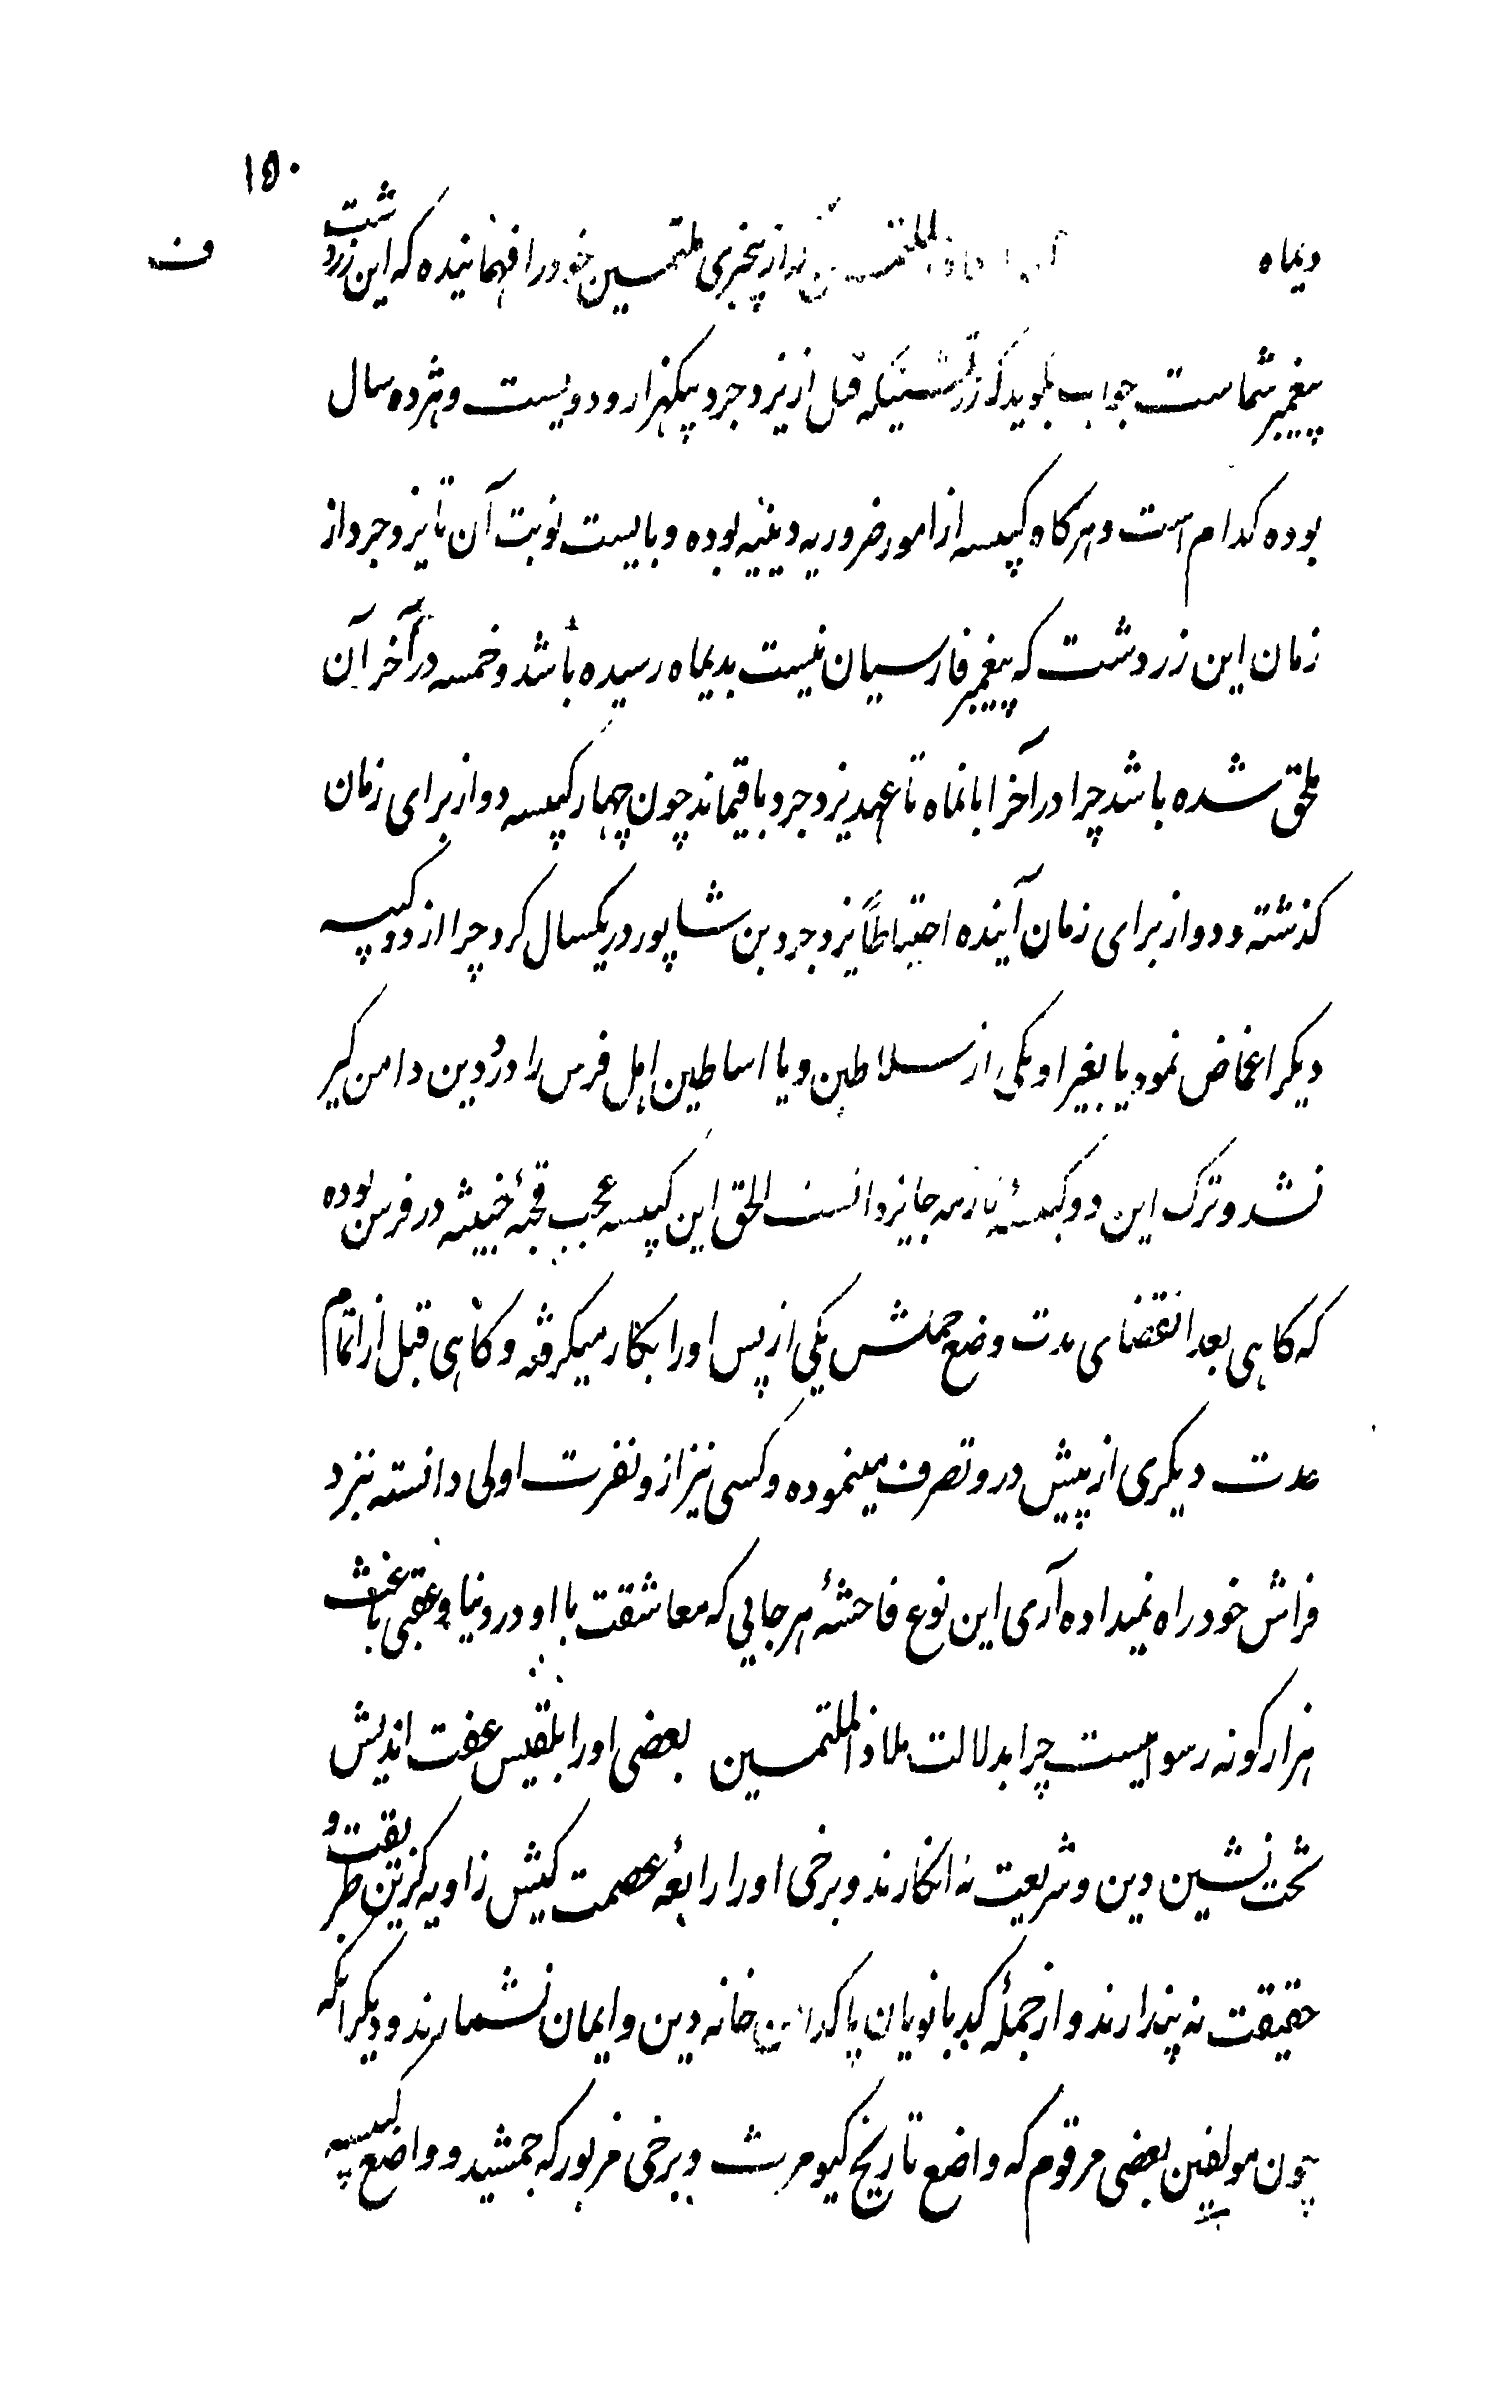 ۱۵۰
ف
دیماه الملتمسین از بیخبری ملتمسین خود را فهمانیده که این زردشت
پیغمبر شماست جواب بگوید که زردشتیکه قبل از یزدجرد یکهزار و دویست و هژده سال
بوده کدام است و هرکاه کبیسه از امور ضروریه دینیه بوده و بایست نوبت آن تا یزدجرد از
زمان این زردشت که پیغمبر فارسیان نیست بدیماه رسیده باشد و خمسه در آخر آن
ملحق شده باشد چرا در آخر ابانماه تا عهد یزدجرد باقیماند چون چهار کبیسه دو از برای زمان
کذشته و دو از برای زمان آینده احتیاطاً یزدجرد بن شاپور در یکسال کرد چرا از دو کبیسه
دیکر اغماض نمود یا بغیر او یکی از سلاطین و یا اساطین اهل فرس را درد دین دامن کیر
نشد و ترک این دو کبیسهٔ جایز دانست الحق این کبیسه عجب قحبهٔ خبیثه در فرس بوده
که کاهی بعد انقضای مدت وضع حملش یکی از پس او را بکار میکرفته و کاهی قبل از اتمام
مدت دیکری از پیش درو تصرف مینموده و کسی نیز ازو نفرت اولی دانسته نزد
فراش خود راه نمیداده آری این نوع فاحشهٔ هرجایی که معاشقت با او در دنیا و عقبی باعث
هزار کونه رسوائیست چرا بدلالت ملاذ الملتمسین بعضی او را بلقیس عفت اندیش
تخت نشین دین و شریعت نه انکارند و برخی او را رابعهٔ عصمت کیش زاویه کزین طریقت و
حقیقت نه پندارند و از جملهٔ کدبانویان پاکدامن خانه دین و ایمان نشمارند و دیکر انکه
چون مولفین بعضی مرقوم که واضع تاریخ کیومرث و برخی مزبور که جمشید و واضع کبیسه